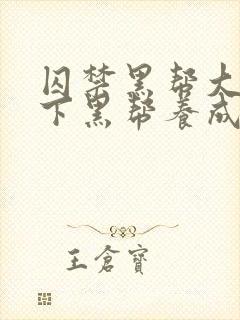 囚禁黑帮大
下黑帮养成
王倉寶